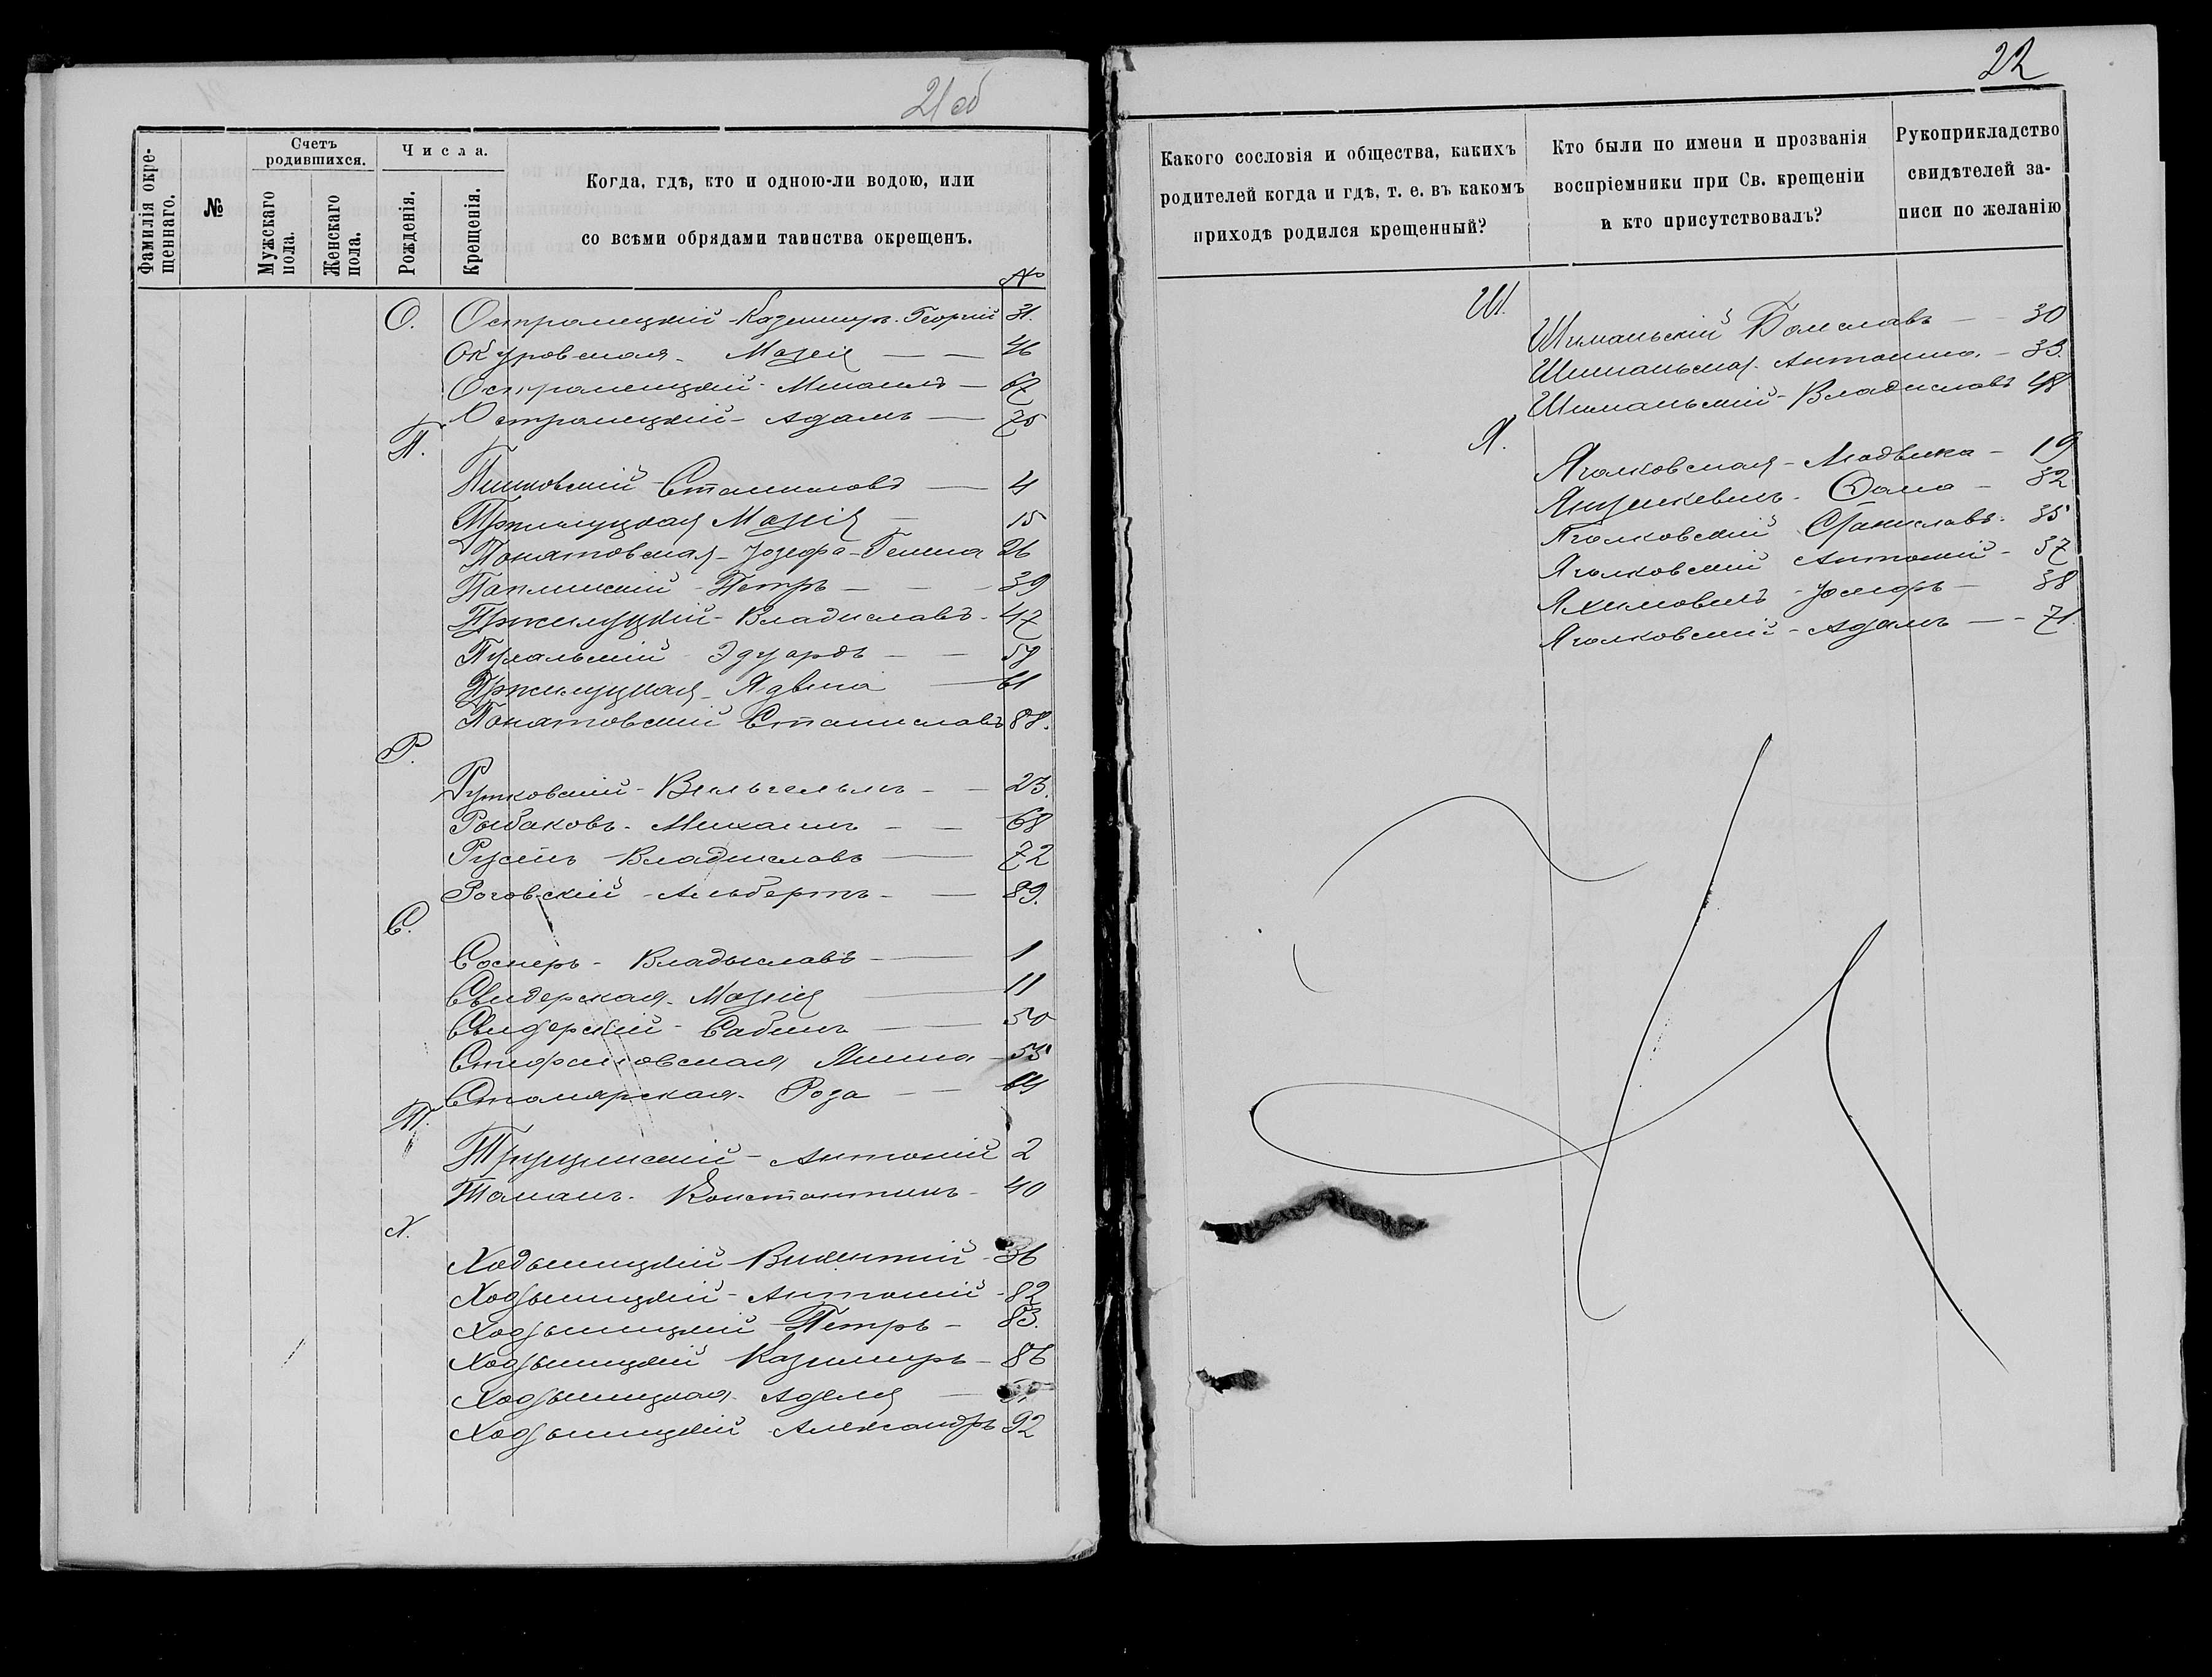 21 об
Фамилія окре-
щеннаго.
№
Счетъ
родившихся.
Мужскаго
пола.
Женскаго
пола.
Числа.
Рожденія.
Крещенія.
Когда, гдѣ, кто и одною-ли водою, или
со всѣми обрядами таинства окрещенъ.
№
О. Остромецкій Казимиръ-Георгій 31.
Окуровская - Марія — — 46
Остромецкій - Михаилъ — 67
Остромецкій - Адамъ — 75
П.
Станиславъ — 4
Пржилуцкая Марія — 15
Понятовская - Іозефа-Гелена 26
Петръ — — 39
Пржилуцкій - Владиславъ - 47
Пухальскій Эдуардъ — — 59
Пржилуцкая - Ядвига — 61
Понятовскій Станиславъ 88.
Р.
Рутковскій - Вильгельмъ - — 23.
Рыбаковъ - Михаилъ - — 68
Владиславъ — 72
Роговскій - Альбертъ - — 89.
С.
Владыславъ — 1
Свидерская - Марія — 11
Свидерскій - Сабинъ — 50
Янина — 55
Столярская - Роза — 64
Т.
Антоній 2
Таманъ - Константинъ - 40
Х.
Ходыницкій Викентій - 36
Ходыницкій - Антоній - 82
Ходыницкій Петръ - 83.
Ходыницкій Казимиръ - 86
Ходыницкая Аделя —
Ходыницкій Александръ 92
22
Какого сословія и общества, какихъ
родителей когда и гдѣ, т. е. въ какомъ
приходѣ родился крещенный?
Кто были по имени и прозванія
воспріемники при Св. крещеніи
и кто присутствовалъ?
Рукоприкладство
свидѣтелей за-
писи по желанію
Ш.
Шиманьскій Болеславъ — 30
Шиманьская Антонина - 33.
Шиманьскій - Владиславъ 48
Я.
Яголковская - Людвика - 19
32
Яголковскій Станиславъ - 35
Яголковскій Антоній - 37
Яхимовичъ - Іосифъ — 38
Яголковскій - Адамъ — - 71.